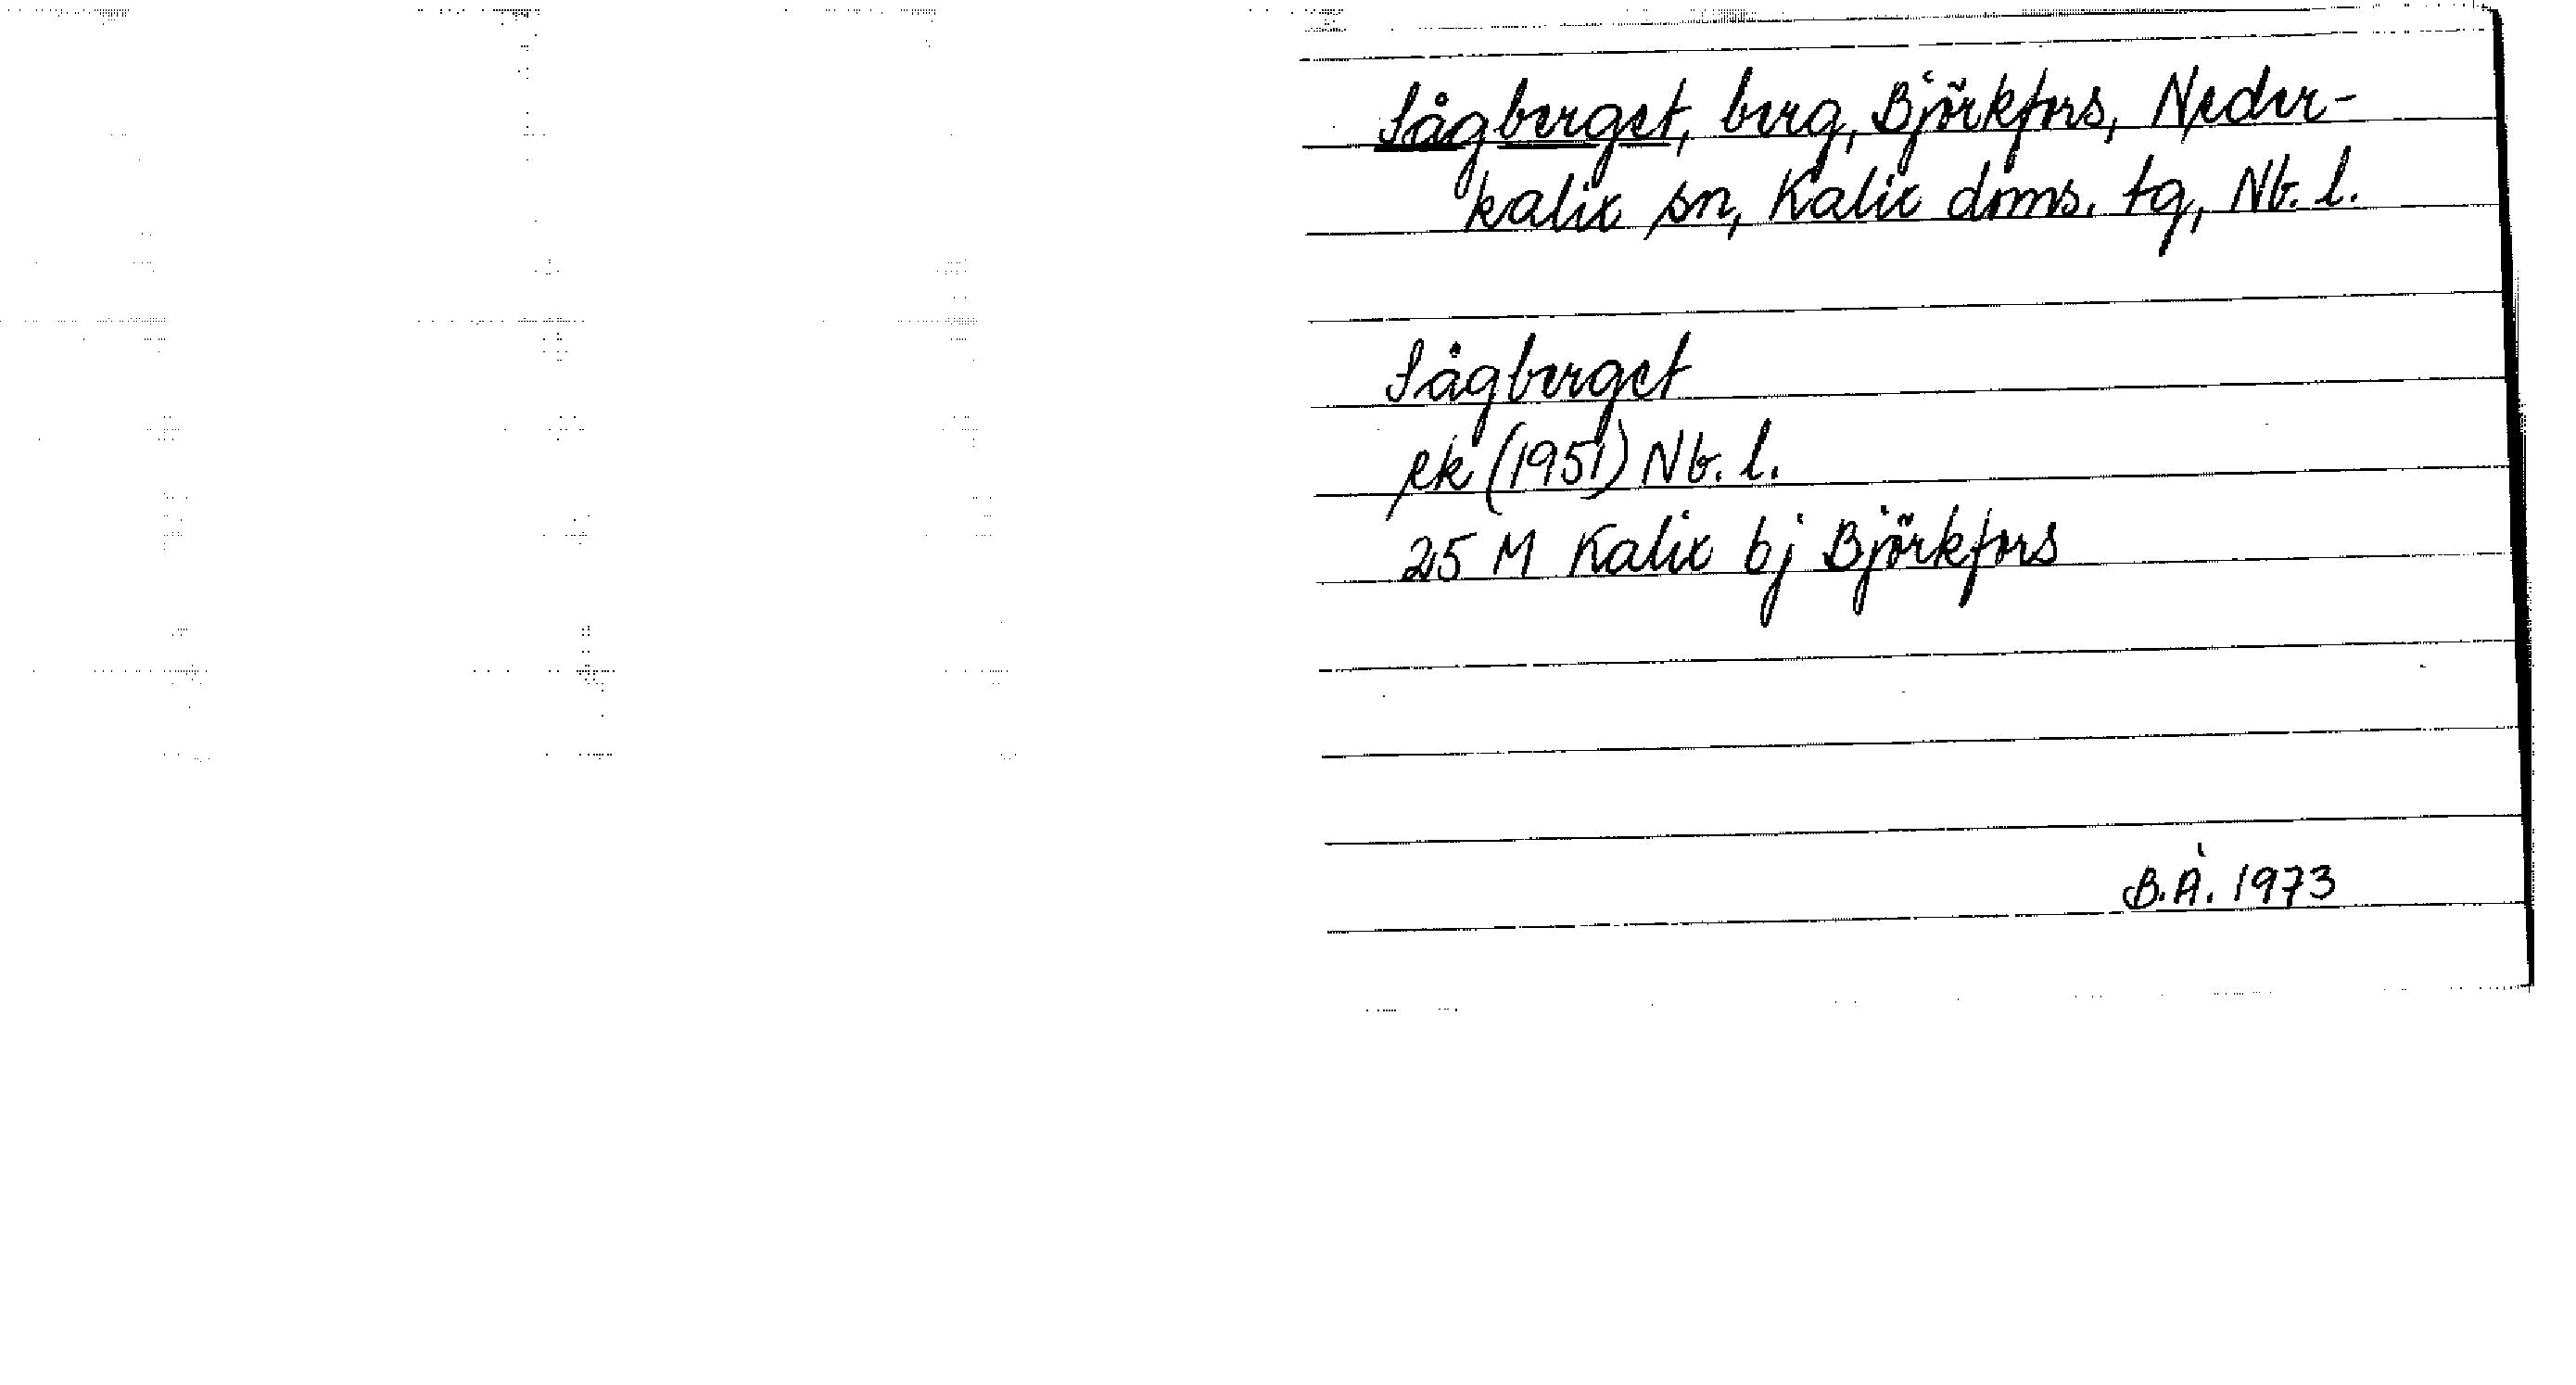 Sågberget, berg, Björkfors, Neder-
kalix sn, Kalix doms. tg, Nb. l.
Sågberget
ek (1951) Nb. l.
25 M Kalix bj Björkfors
B.Å. 1973